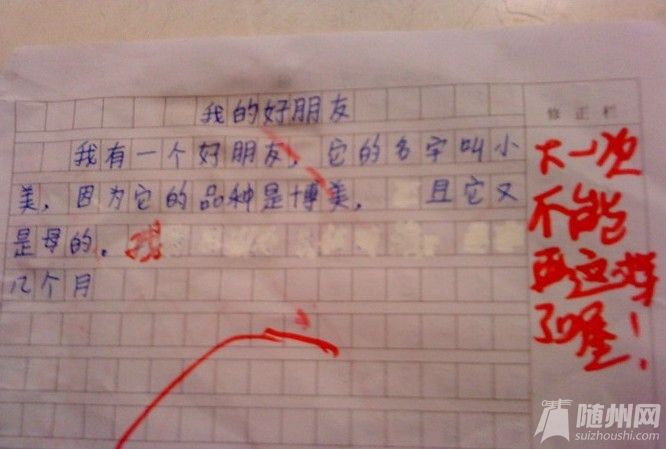 我的好朋友
修正栏
我有一个好朋友，它的名字叫小
美，因为它的品种是博美， 且它又
是母的。
几个月
不能
再这样
了喔！
随州网
suizhoushi.com